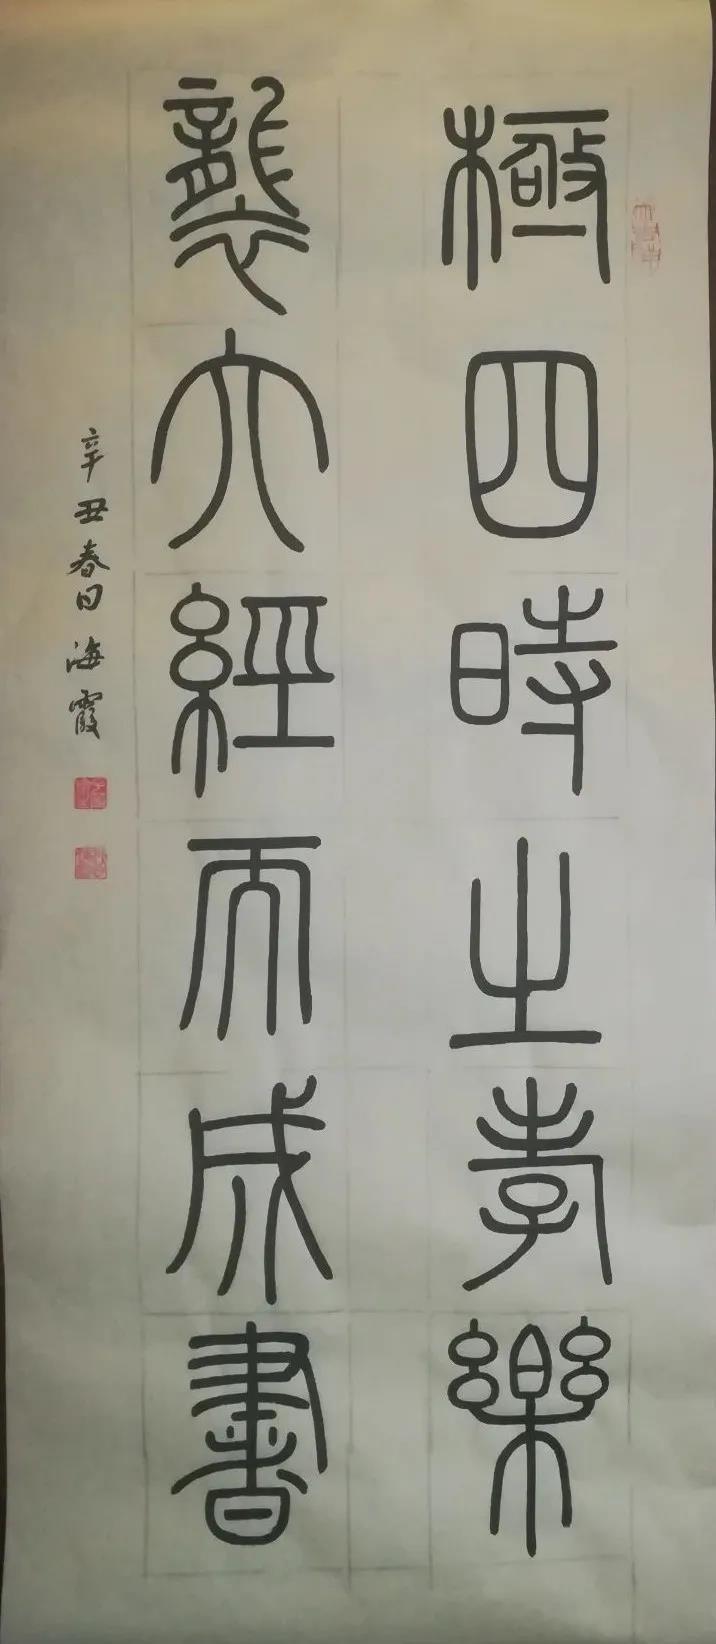 極四時之孝樂
襲六經而成書
辛丑春日海霞